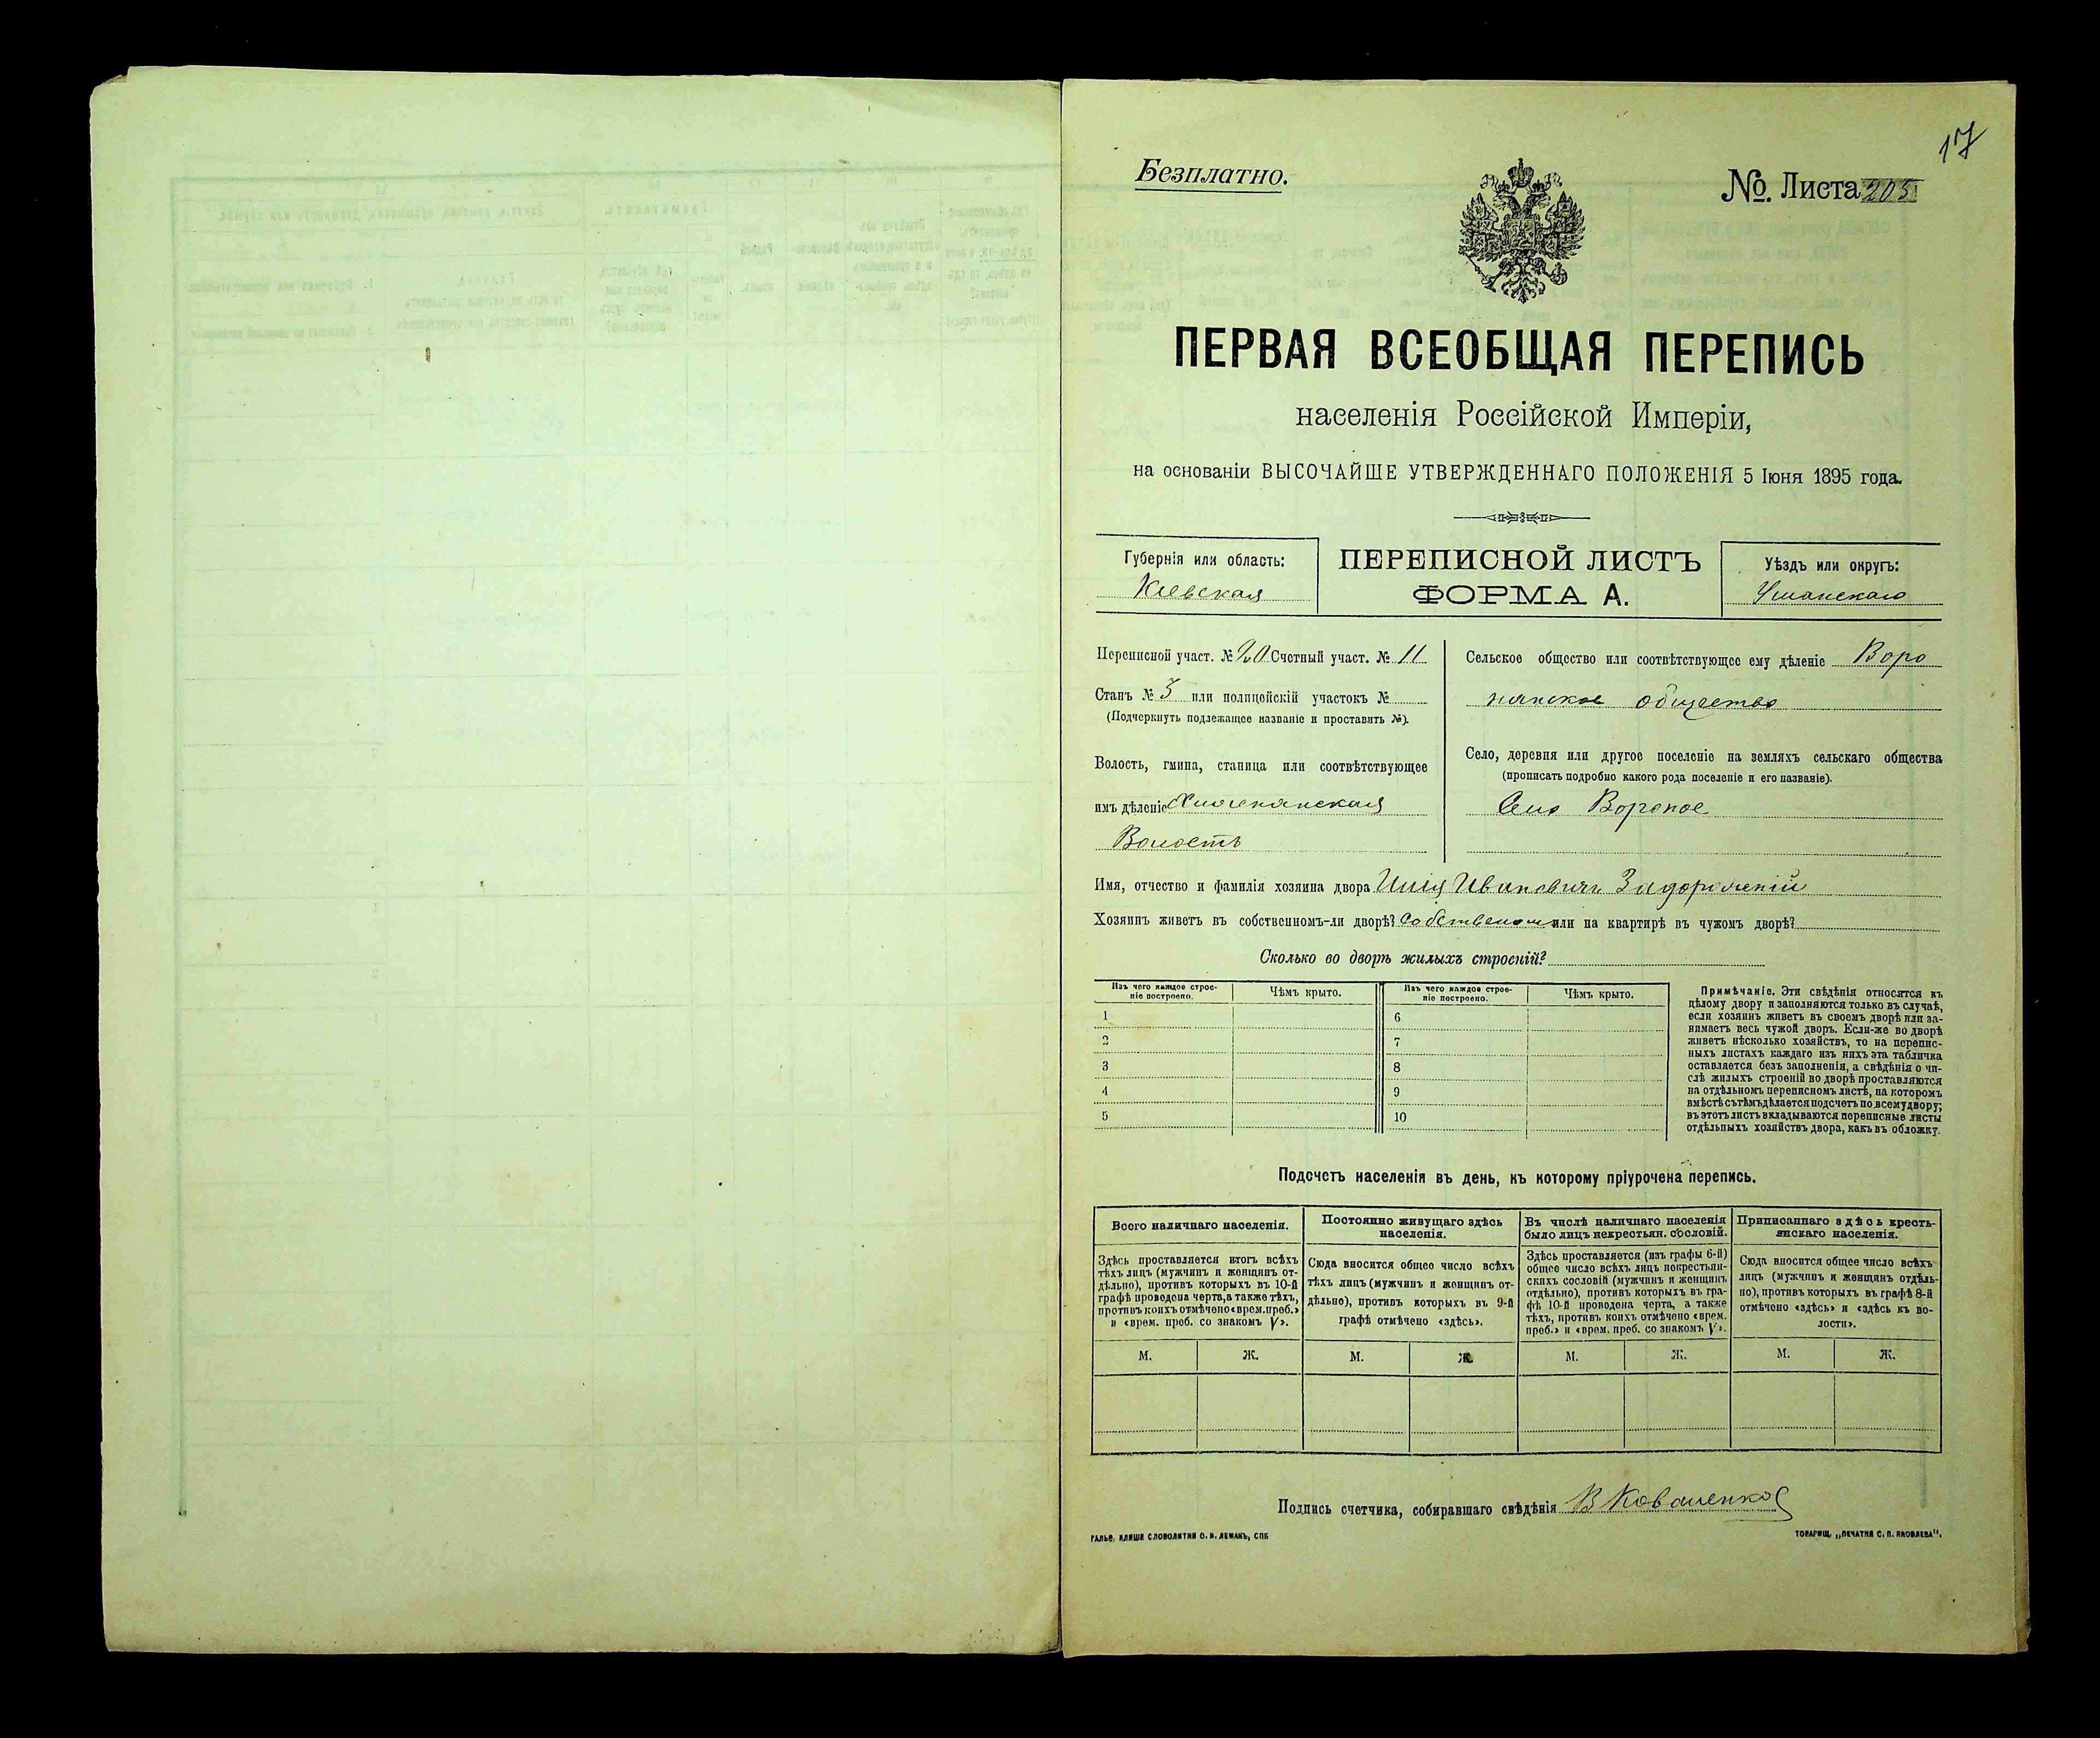 17
Безплатно.
№. Листа 205
ПЕРВАЯ ВСЕОБЩАЯ ПЕРЕПИСЬ
населенія Россійской Имперіи,
на основаніи ВЫСОЧАЙШЕ УТВЕРЖДЕННАГО ПОЛОЖЕНІЯ 5 Іюня 1895 года.
Губернія или область:
Кіевская
ПЕРЕПИСНОЙ ЛИСТЪ
ФОРМА А.
Уѣздъ или округъ:
Уманскаго
Переписной участ. № 20 Счетный участ. № 11
Станъ № 3 или полицейскій участокъ №
(Подчеркнуть подлежащее названіе и проставить №).
Волость, гмина, станица или соотвѣтствующее
имъ дѣленіе
Волость
Сельское общество или соотвѣтствующее ему дѣленіе Воро
нянское общество
Село, деревня или другое поселеніе на земляхъ сельскаго общества
(прописать подробно какого рода поселеніе и его названіе).
Село Вороное
Имя, отчество и фамилія хозяина двора Илія Ивановичъ Задорожній
Хозяинъ живетъ въ собственномъ-ли дворѣ? Собственом или на квартирѣ въ чужомъ дворѣ?
Сколько во дворѣ жилыхъ строеній?
Изъ чего каждое строе-
ніе построено.
Чѣмъ крыто.
Изъ чего каждое строе-
ніе построено.
Чѣмъ крыто.
1
2
3
4
5
6
7
8
9
10
Примѣчаніе. Эти свѣдѣнія относятся къ
цѣлому двору и заполняются только въ случаѣ,
если хозяинъ живетъ въ своемъ дворѣ или за-
нимаетъ весь чужой дворъ. Если-же во дворѣ
живетъ нѣсколько хозяйствъ, то на перепис-
ныхъ листахъ каждаго изъ нихъ эта табличка
оставляется безъ заполненія, а свѣдѣнія о чи-
слѣ жилыхъ строеній во дворѣ проставляются
на отдѣльномъ переписномъ листѣ, на которомъ
вмѣстѣ съ тѣмъ дѣлается подсчетъ по всему двору;
въ этотъ листъ вкладываются переписные листы
отдѣльныхъ хозяйствъ двора, какъ въ обложку.
Подсчетъ населенія въ день, къ которому пріурочена перепись.
Всего наличнаго населенія.
Здѣсь проставляется итогъ всѣхъ
тѣхъ лицъ (мужчинъ и женщинъ от-
дѣльно), противъ которыхъ въ 10-й
графѣ проведена черта, а также тѣхъ,
противъ коихъ отмѣчено «врем. преб.»
и «врем. преб. со знакомъ V».
М. Ж.
Постоянно живущаго здѣсь
населенія.
Сюда вносится общее число всѣхъ
тѣхъ лицъ (мужчинъ и женщинъ от-
дѣльно), противъ которыхъ въ 9-й
графѣ отмѣчено «здѣсь».
М. Ж.
Въ числѣ наличнаго населенія
было лицъ некрестьян. сословій.
Здѣсь проставляется (изъ графы 6-й)
общее число всѣхъ лицъ некрестьян-
скихъ сословій (мужчинъ и женщинъ
отдѣльно), противъ которыхъ въ гра-
фѣ 10-й проводена черта, а также
тѣхъ, противъ коихъ отмѣчено «врем.
преб.» и «врем. преб. со знакомъ V».
М. Ж.
Приписаннаго здѣсь кресть-
янскаго населенія.
Сюда вносится общее число всѣхъ
лицъ (мужчинъ и женщинъ отдѣль-
но), противъ которыхъ въ графѣ 8-й
отмѣчено «здѣсь» и «здѣсь къ во-
лости».
М. Ж.
Подпись счетчика, собиравшаго свѣдѣнія В Коваленко
ГАЛЬВ. КЛИШЕ СЛОВОЛИТНИ О. И. ЛЕМАНЪ, СПБ
ТОВАРИЩ. „ПЕЧАТНЯ С. П. ЯКОВЛЕВА".